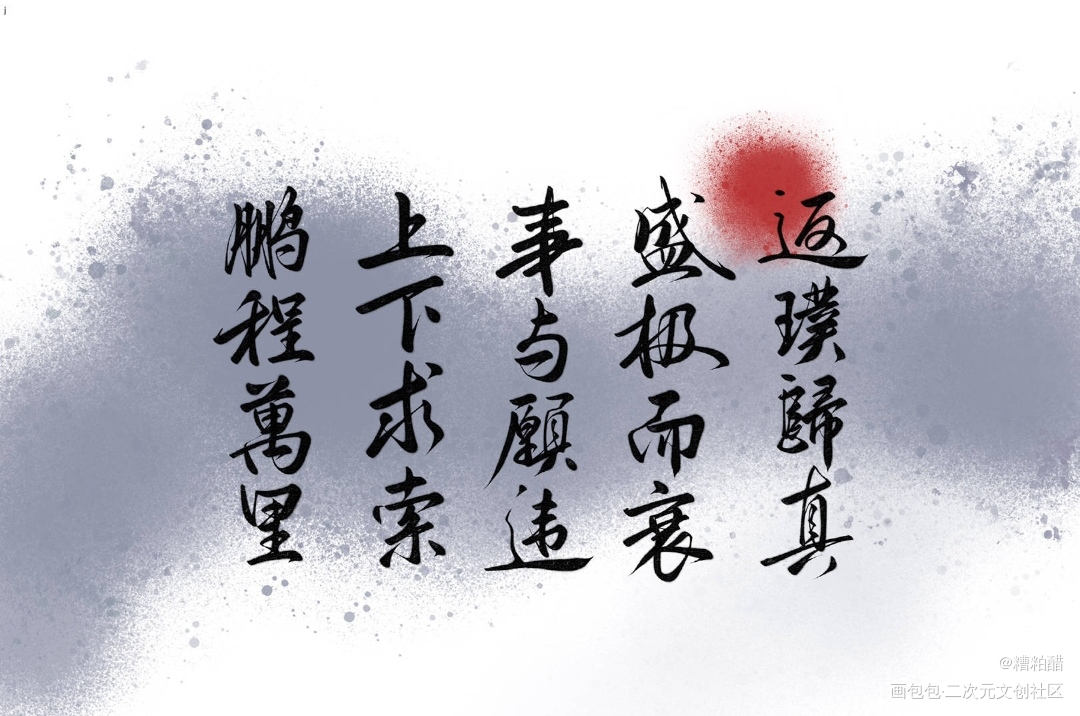 返璞歸真
盛极而衰
事与願违
上下求索
鹏程萬里
j
@糟粕醋
画包包·二次元文创社区